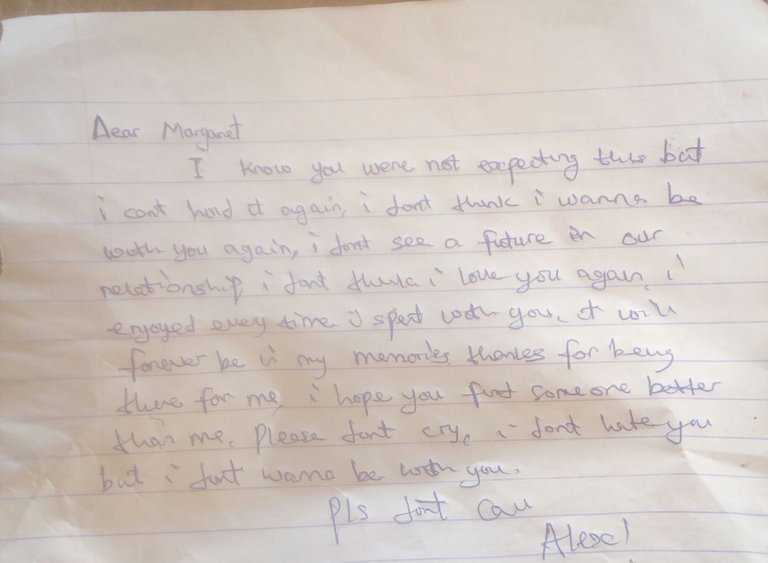 Dear Margaret
I know you were not expecting this but
i cant hold it again, i dont think i wanna be
with you again, i dont see a future in our
relationship, i dont think i love you again, i
enjoyed every time i spent with you, it will
forever be in my memories thanks for being
there for me, i hope you find someone better
than me. Please dont cry, i dont hate you
but i dont wanna be with you.
pls dont call
Alex!